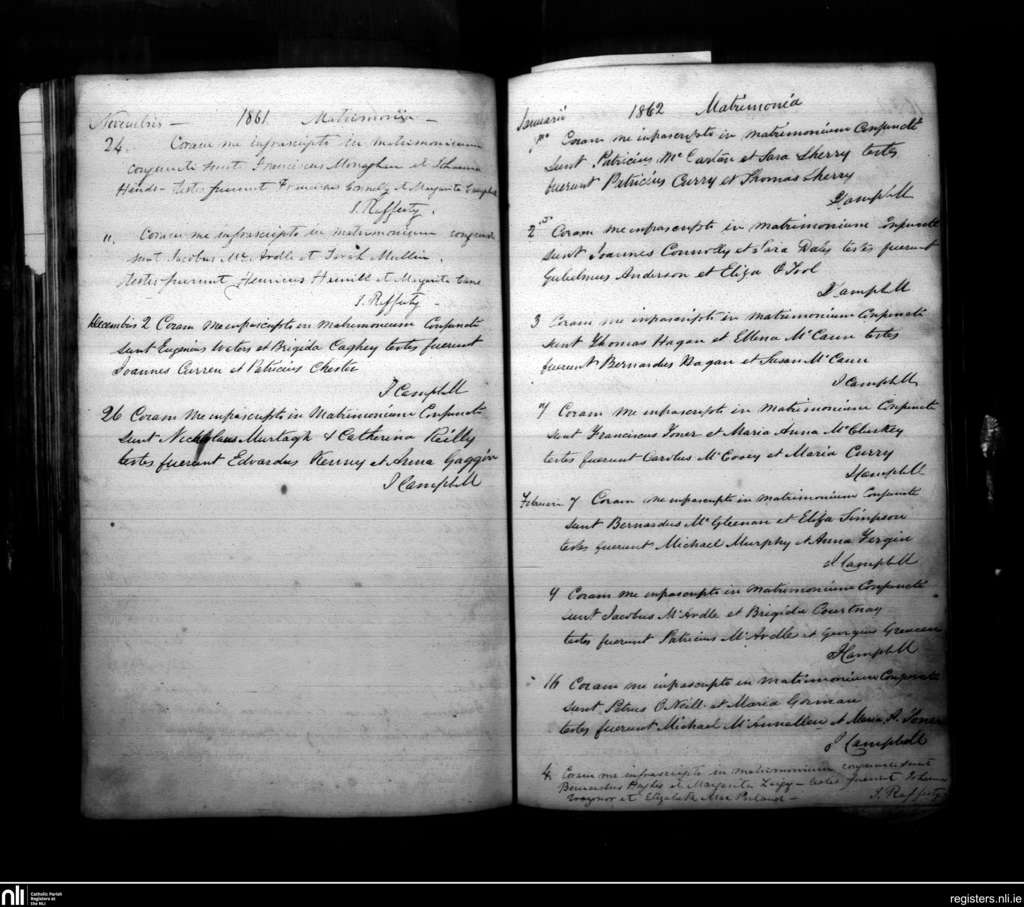 Novembris — 1861. Matrimonia —
24. Coram me infrascripto in matrimonium
conjuncti sunt Franciscus Monaghan et
Hinds — testes fuerunt Franciscus et Margarita Campbell
J. Rafferty.
". Coram me infrascripto in matrimonium
sunt Jacobus Mc Ardle et Sarah Mullin.
testes fuerunt Henricus et Margarita
J. Rafferty —
Decembris 2 Coram me infrascripto in Matrimonium Conjuncti
sunt Eugenius Waters et Brigida Caghey testes fuerunt
Joannes Curren et Patricius Chester
J Campbell
26 Coram me infrascripto in Matrimonium Conjuncti
sunt Nicholaus Murtagh & Catherina Reilly
testes fuerunt Edvardus Kenny et Anna Goggin
J Campbell
Januarii 1862 Matrimonia
Coram me infrascripto in matrimonium Conjuncti
sunt Patricius Mc Cartan et Sara Sherry testes
fuerunt Patricius Curry et Thomas Sherry
J Campbell
2 Coram me infrascripto in matrimonium Conjuncti
sunt Joannes Connolly et Sara Daly testes fuerunt
Gulielmus Anderson et Eliza O Tool
J Campbell
3 Coram me infrascripto in matrimonium Conjuncti
sunt Thomas Hagan et Ellena Mc Cann testes
fuerunt Bernardus Hagan et Susan Mc Cann
J Campbell
7 Coram me infrascripto in matrimonium Conjuncti
sunt Franciscus Toner et Maria Anna Mc Cluskey
testes fuerunt Carolus Mc Covey et Maria Curry
J Campbell
Februarii 7 Coram me infrascripto in matrimonium Conjuncti
sunt Bernardus Mc Gleenan et Eliza Simpson
testes fuerunt Michael Murphy et Anna
J Campbell
9 Coram me infrascripto in matrimonium Conjuncti
sunt Jacobus Mc Ardle et Brigida Courtnay
testes fuerunt Patricius Mc Ardle et Georgius
J Campbell
16 Coram me infrascripto in matrimonium Conjuncti
sunt Petrus O Neill et Maria Gorman
testes fuerunt Michael Mc Annallen et Maria A. Toner
J Campbell
4. Coram me infrascripto in matrimonium conjuncti sunt
Bernardus Hughes et Margarita — testes fuerunt
Traynor et Elizabeth —
J. Rafferty
nli
Catholic Parish
Registers at
the NLI
registers.nli.ie